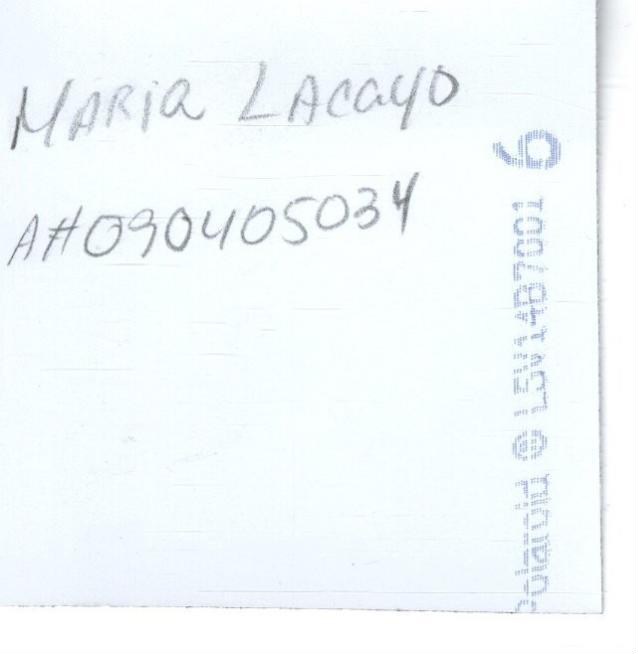 MARIA LACAYO
A#090405034
Polaroid ® L5V14B7001 6